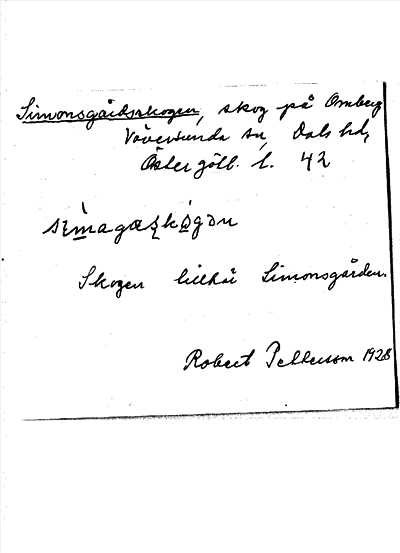 Simonsgårdsskogen, skog på Omberg
Väversunda sn, Dals hd,
Östergötl. l. 42
Skogen tillhör Simonsgården.
Robert Pettersson 1928